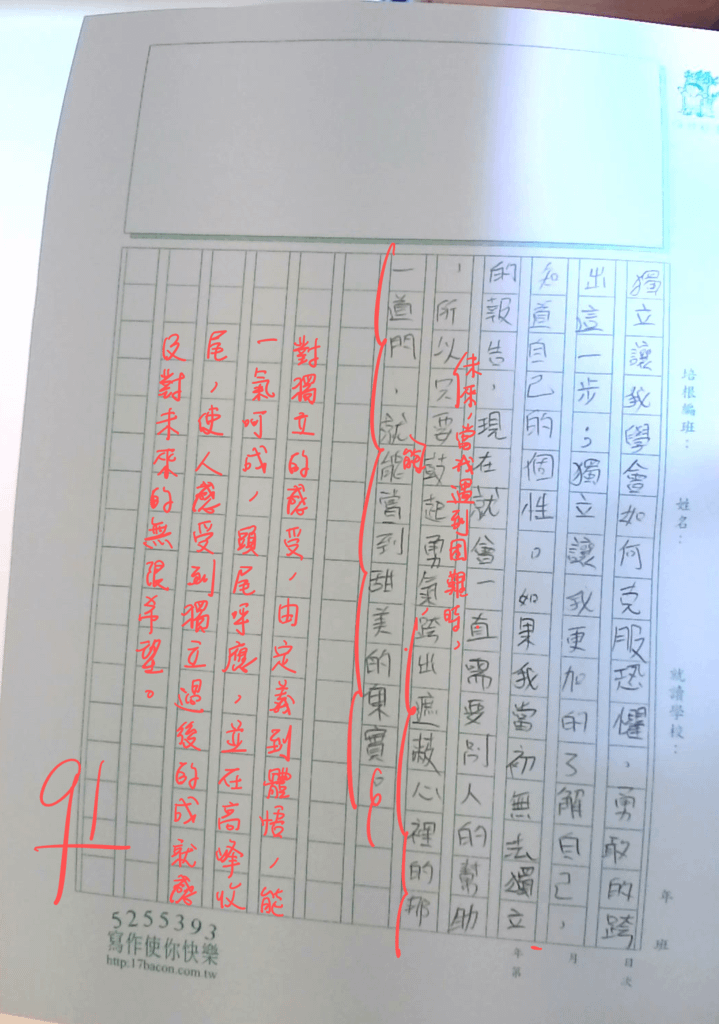 培根編班：
姓名：
就讀學校：
年
班
年
月
日
第
次
獨立讓我學會如何克服恐懼，勇敢的跨
出這一步；獨立讓我更加的了解自己，
知道自己的個性。如果我當初無法獨立
的報告，現在就會一直需要別人的幫助
，所以只要鼓起勇氣跨出遮蔽心裡的那
一道門，就能嘗到甜美的果實。
未來，當我遇到困難時，
能
對獨立的感受，由定義到體悟，能
一氣呵成，頭尾呼應，並在高峰收
尾，使人感受到獨立過後的成就感
及對未來的無限希望。
91
5255393
寫作使你快樂
http:17bacon.com.tw